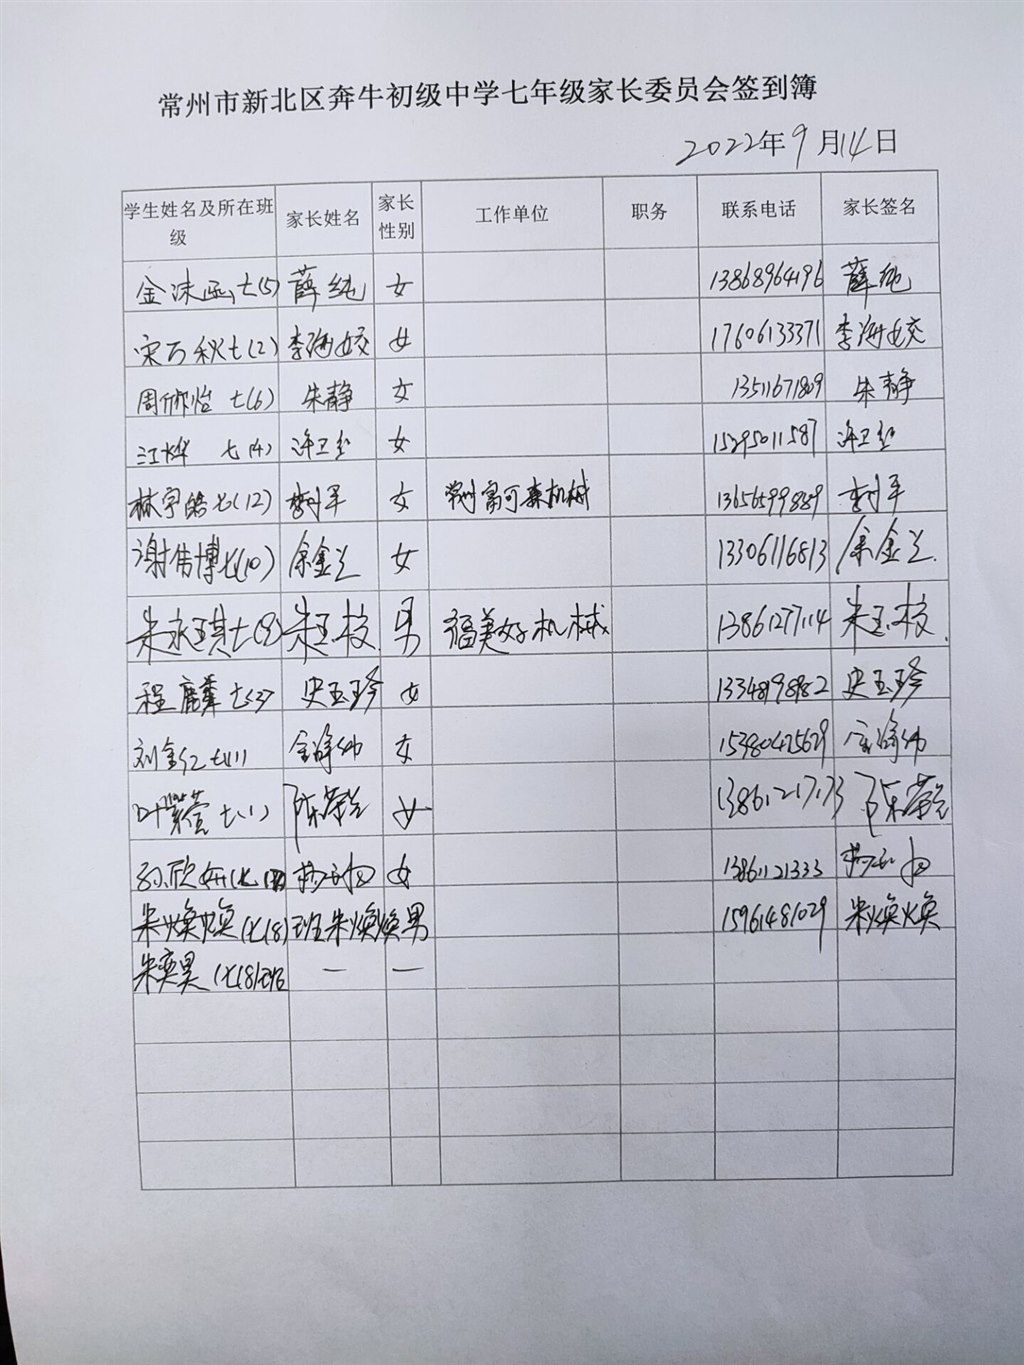 常州市新北区奔牛初级中学七年级家长委员会签到簿
2022年9月14日
学生姓名及所在班级 家长姓名 家长性别 工作单位 职务 联系电话 家长签名
金沫函 七(5) 薛纯 女 13868964196 薛纯
宋万秋 七(2) 李海姣 女 17606133371 李海姣
周欣怡 七(6) 朱静 女 13511671809 朱静
江烨 七(4) 许卫红 女 15295011587 许卫红
林宇皓 七(12) 女 13656599889
谢伟博 七(10) 余金兰 女 13306116813 余金兰
朱永琪 七(9) 朱玉枝 男 福美好机械 13861277114 朱玉枝
程麒 七(3) 史玉珍 女 13348198982 史玉珍
刘鑫仁 七(11) 女 15380425629
叶紫萱 七(1) 陈荣兰 女 13861217173 陈荣兰
孙欣妍 女 13861121333
朱焕焕 (七(8)班 朱焕焕 男 15961481029 朱焕焕
朱奕昊 (七(8)班 — —